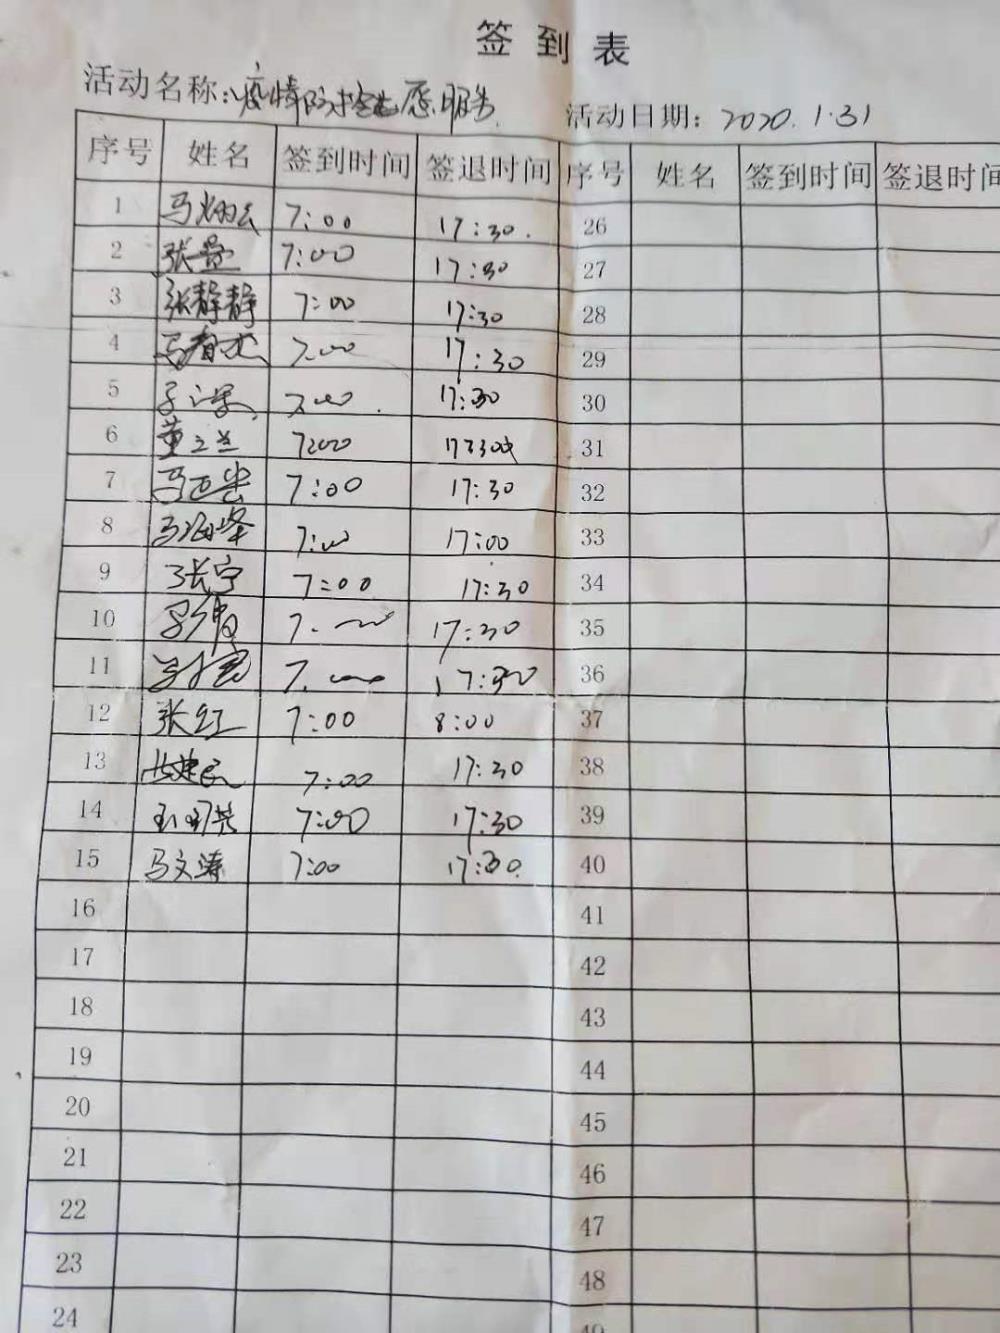 签到表
活动名称:疫情防控志愿服务 活动日期: 2020.1.31
序号 姓名 签到时间 签退时间 序号 姓名 签到时间 签退时间
1 马 7:00 17:30. 26
2 张 7:00 17:30 27
3 张静静 7:00 17:30 28
4 马春 7:00 17:30 29
5 7:00 17:30 30
6 董立兰 7:00 17:30 31
7 马 7:00 17:30 32
8 马海峰 7:00 17:00 33
9 张宁 7:00 17:30 34
10 7:00 17:30 35
11 7:00 17:30 36
12 张红 7:00 8:00 37
13 建民 7:00 17:30 38
14 7:00 17:30 39
15 马文涛 7:00 17:30 40
16 41
17 42
18 43
19 44
20 45
21 46
22 47
23 48
24 49